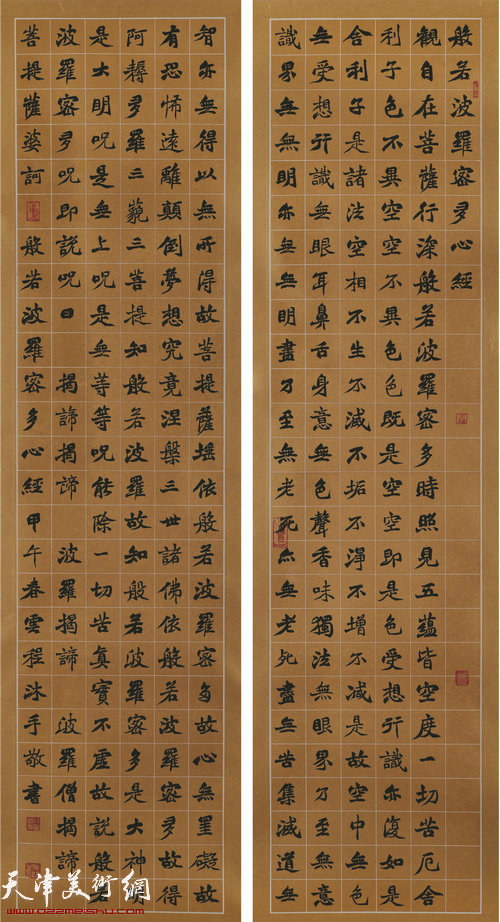 般若波羅密多心經
觀自在菩薩行深般若波羅密多時照見五蘊皆空度一切苦厄舍
利子色不異空空不異色色既是空空即是色受想行識亦復如是
舍利子是諸法空相不生不滅不垢不淨不增不減是故空中無色
無受想行識無眼耳鼻舌身意無色聲香味觸法無眼界乃至無意
識界無無明亦無無明盡乃至無老死亦無老死盡無苦集滅道無
智亦無得以無所得故菩提薩埵依般若波羅密多故心無罣礙故
有恐怖遠離顛倒夢想究竟涅槃三世諸佛依般若波羅密多故得
阿耨多羅三藐三菩提知般若波羅故知般若波羅密多是大神
是大明咒是無上咒是無等等咒能除一切苦真實不虛故說般若
波羅密多咒即說咒曰 揭諦揭諦 波羅揭諦 波羅僧揭諦
菩提薩婆訶 般若波羅密多心經甲午春雲程沐手敬書
天津美術網
www.022meishu.com